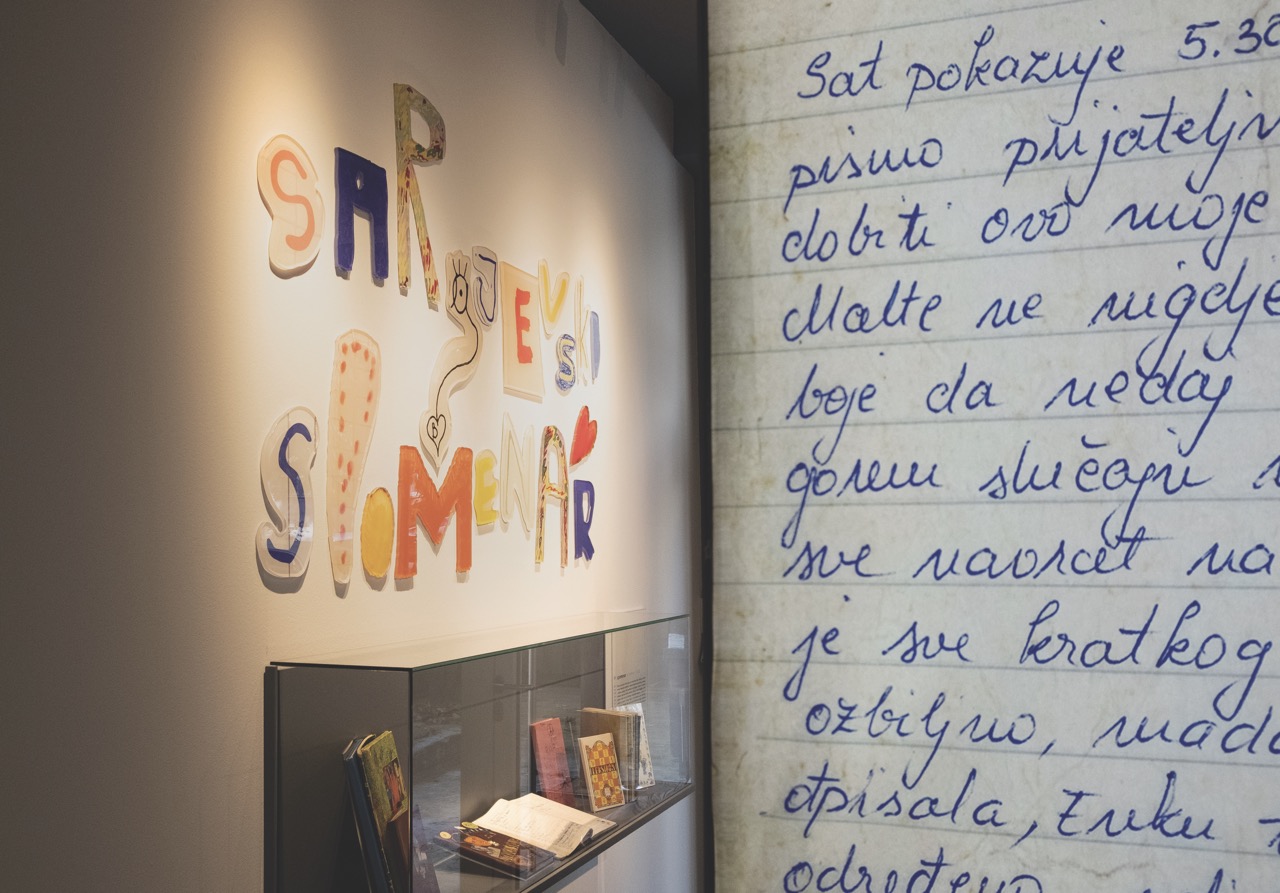 SARAJEVSKI
SPOMENAR
Sat pokazuje 5.30
pismo prijateljn
dobiti ovo moje
Malte ne nigdje
boje da nedaj
gorem slučaju
sve navorat na
je sve kratkog
ozbiljno, mada
otpisala, Enku
određeno